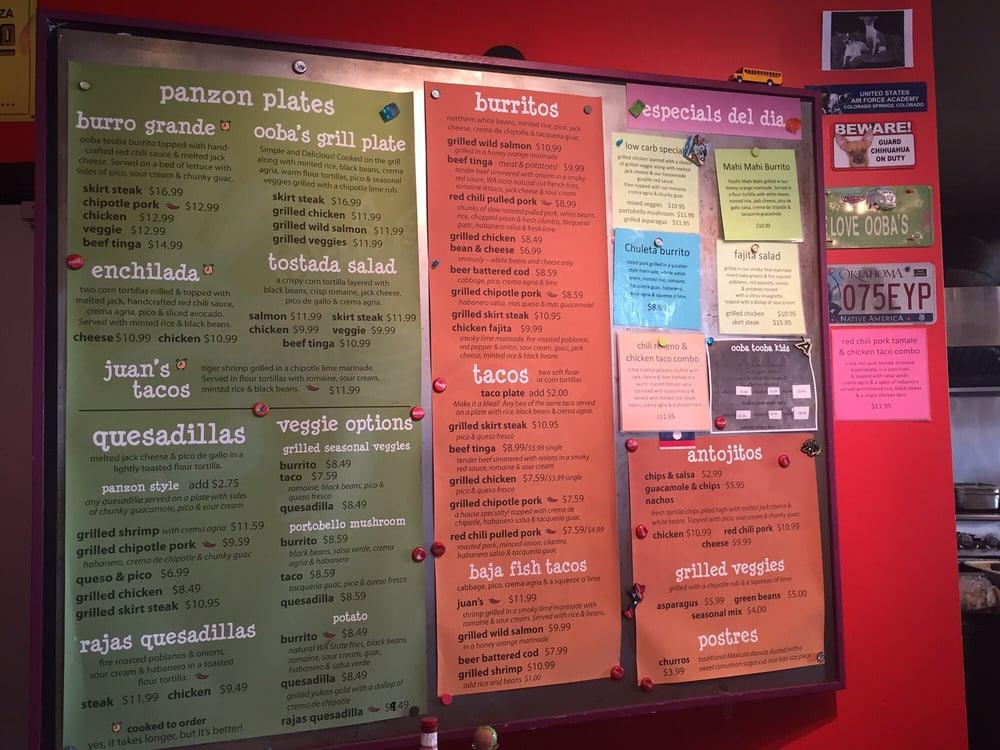 panzon plates
burro grande
ooba tooba burrito topped with hand-
crafted red chili sauce & melted jack
cheese. Served on a bed of lettuce with
sides of pico, sour cream & chunky guac.
skirt steak $16.99
chipotle pork $12.99
chicken $12.99
veggie $12.99
beef tinga $14.99
ooba's grill plate
Simple and Delicious! Cooked on the grill
along with minted rice, black beans, crema
agria, warm flour tortillas, pico & seasonal
veggies grilled with a chipotle lime rub.
skirt steak $16.99
grilled chicken $11.99
grilled wild salmon $11.99
grilled veggies $11.99
enchilada
two corn tortillas rolled & topped with
melted jack, handcrafted red chili sauce,
crema agria, pico & sliced avocado.
Served with minted rice & black beans.
cheese $10.99 chicken $10.99
tostada salad
a crispy corn tortilla layered with
black beans, crisp romaine, jack cheese,
pico de gallo & crema agria.
salmon $11.99 skirt steak $11.99
chicken $9.99 veggie $9.99
beef tinga $10.99
juan's
tacos
tiger shrimp grilled in a chipotle lime marinade.
Served in flour tortillas with romaine, sour cream,
minted rice & black beans. $11.99
quesadillas
melted jack cheese & pico de gallo in a
lightly toasted flour tortilla.
panzon style add $2.75
any quesadilla served on a plate with sides
of chunky guacamole, pico & sour cream
grilled shrimp with crema agria $11.59
grilled chipotle pork $9.59
habanero, crema de chipotle & chunky guac
queso & pico $6.99
grilled chicken $8.49
grilled skirt steak $10.95
rajas quesadillas
fire roasted poblanos & onions,
sour cream & habanero in a toasted
flour tortilla.
steak $11.99 chicken $9.49
cooked to order
yes, it takes longer, but it's better!
veggie options
grilled seasonal veggies
burrito $8.49
taco $7.59
romaine, black beans, pico &
queso fresco
quesadilla $8.49
portobello mushroom
burrito $8.59
black beans, salsa verde, crema
agria & habanero
taco $8.59
tacqueria guac, pico & queso fresco
quesadilla $8.59
potato
burrito $8.49
natural WA State fries, black beans,
romaine, sour cream, guac,
habanero & salsa verde
quesadilla $8.49
grilled yukon gold with a dollop of
crema de chipotle
rajas quesadilla $9.49
burritos
northern white beans, minted rice, pico, jack
cheese, crema de chipotle & tacqueria guac.
grilled wild salmon $10.99
grilled in a honey orange marinade
beef tinga - meat & potatoes! $9.99
tender beef simmered with onions in a smoky
red sauce, WA state natural cut french fries,
romaine lettuce, jack cheese & sour cream
red chili pulled pork $8.99
chunks of slow roasted pulled pork, white beans,
rice, chopped onion & fresh cilantro, tacqueria
guac, habanero salsa & fresh lime
grilled chicken $8.49
bean & cheese $6.99
seriously – white beans and cheese only
beer battered cod $8.59
cabbage, pico, crema agria & lime
grilled chipotle pork $8.59
habanero salsa, mas queso & mas guacamole!
grilled skirt steak $10.95
chicken fajita $9.99
smoky lime marinade, fire-roasted poblanos,
red pepper & onion, sour cream, guac, jack
cheese, minted rice & black beans
tacos two soft flour
or corn tortillas
taco plate add $2.00
Make it a Meal! Any two of the same taco served
on a plate with rice, black beans & crema agria.
grilled skirt steak $10.95
pico & queso fresco
beef tinga $8.99/$5.99 single
tender beef simmered with onions in a smoky
red sauce, romaine & sour cream
grilled chicken $7.59/$3.99 single
pico & queso fresco
grilled chipotle pork $7.59
a house specialty! topped with crema de
chipotle, habanero salsa & tacqueria guac
red chili pulled pork $7.59/$4.99
roasted pork, minced onion, cilantro,
habanero salsa & tacqueria guac
baja fish tacos
cabbage, pico, crema agria & a squeeze o' lime
juan's $11.99
shrimp grilled in a smoky lime marinade with
romaine & sour cream. Served with rice & beans.
grilled wild salmon $9.99
in a honey orange marinade
beer battered cod $7.99
grilled shrimp $10.99
add rice and beans $1.00
especials del dia
low carb special
mixed veggies $10.95
portobello mushroom $11.95
grilled asparagus $11.95
Mahi Mahi Burrito
$10.99
Chuleta burrito
$8.99
fajita salad
grilled chicken $10.95
skirt steak $15.95
chili relleno &
chicken taco combo
$11.95
ooba tooba kids
antojitos
chips & salsa $2.99
guacamole & chips $5.95
nachos
fresh tortilla chips piled high with melted jack cheese &
white beans. Topped with pico, sour cream & chunky guac.
chicken $10.99 red chili pork $10.99
cheese $9.99
grilled veggies
grilled with a chipotle rub & a squeeze of lime
asparagus $5.99 green beans $5.00
seasonal mix $4.00
postres
churros
$3.99
traditional Mexican donuts dusted with a
sweet cinnamon sugar cut into bite size pieces
UNITED STATES
AIR FORCE ACADEMY
COLORADO SPRINGS, COLORADO
BEWARE!
GUARD
CHIHUAHUA
ON DUTY
LOVE OOBA'S
OKLAHOMA
075EYP
NATIVE AMERICA
red chili pork tamale
& chicken taco combo
$11.95